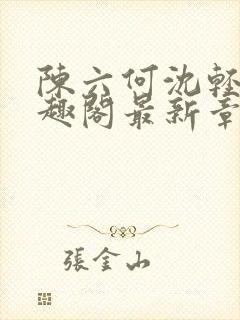 陳六何沈輕
趣閣最新章
張金山